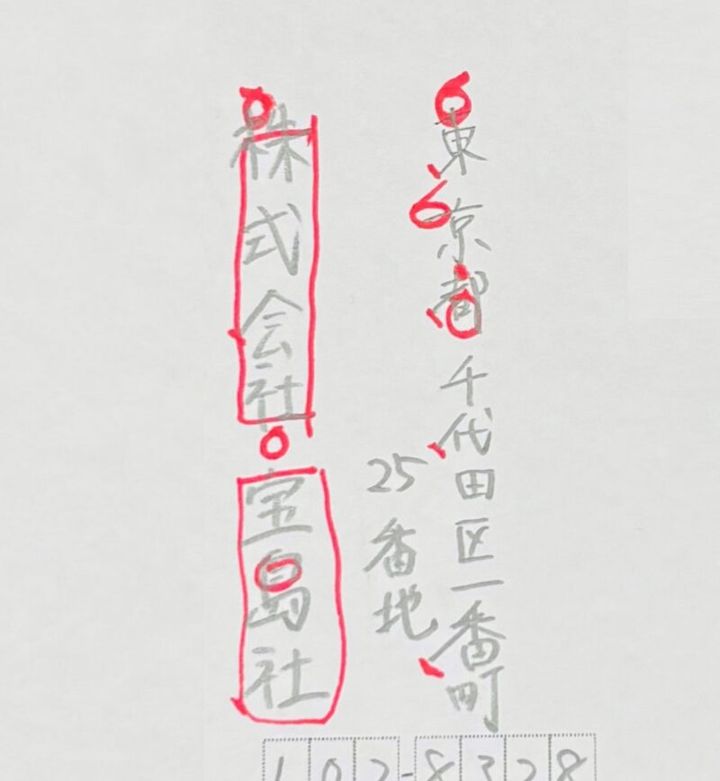 東京都千代田区一番町
25番地
株式会社宝島社
102-8328